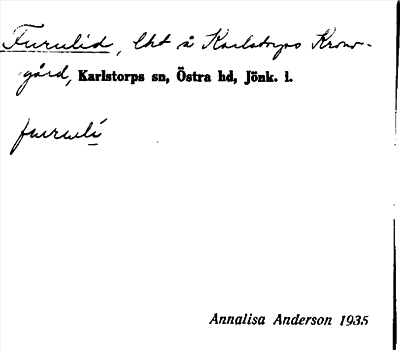 Furulid, lht å Karlstorps Krono-
gård, Karlstorps sn, Östra hd, Jönk. l.
furuli
Annalisa Anderson 1935